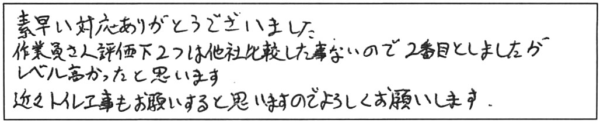 素早い対応ありがとうございました
作業員さん評価下2つは他社比較した事ないので2番目としましたが
レベル高かったと思います
近々トイレ工事もお願いすると思いますのでよろしくお願いします.